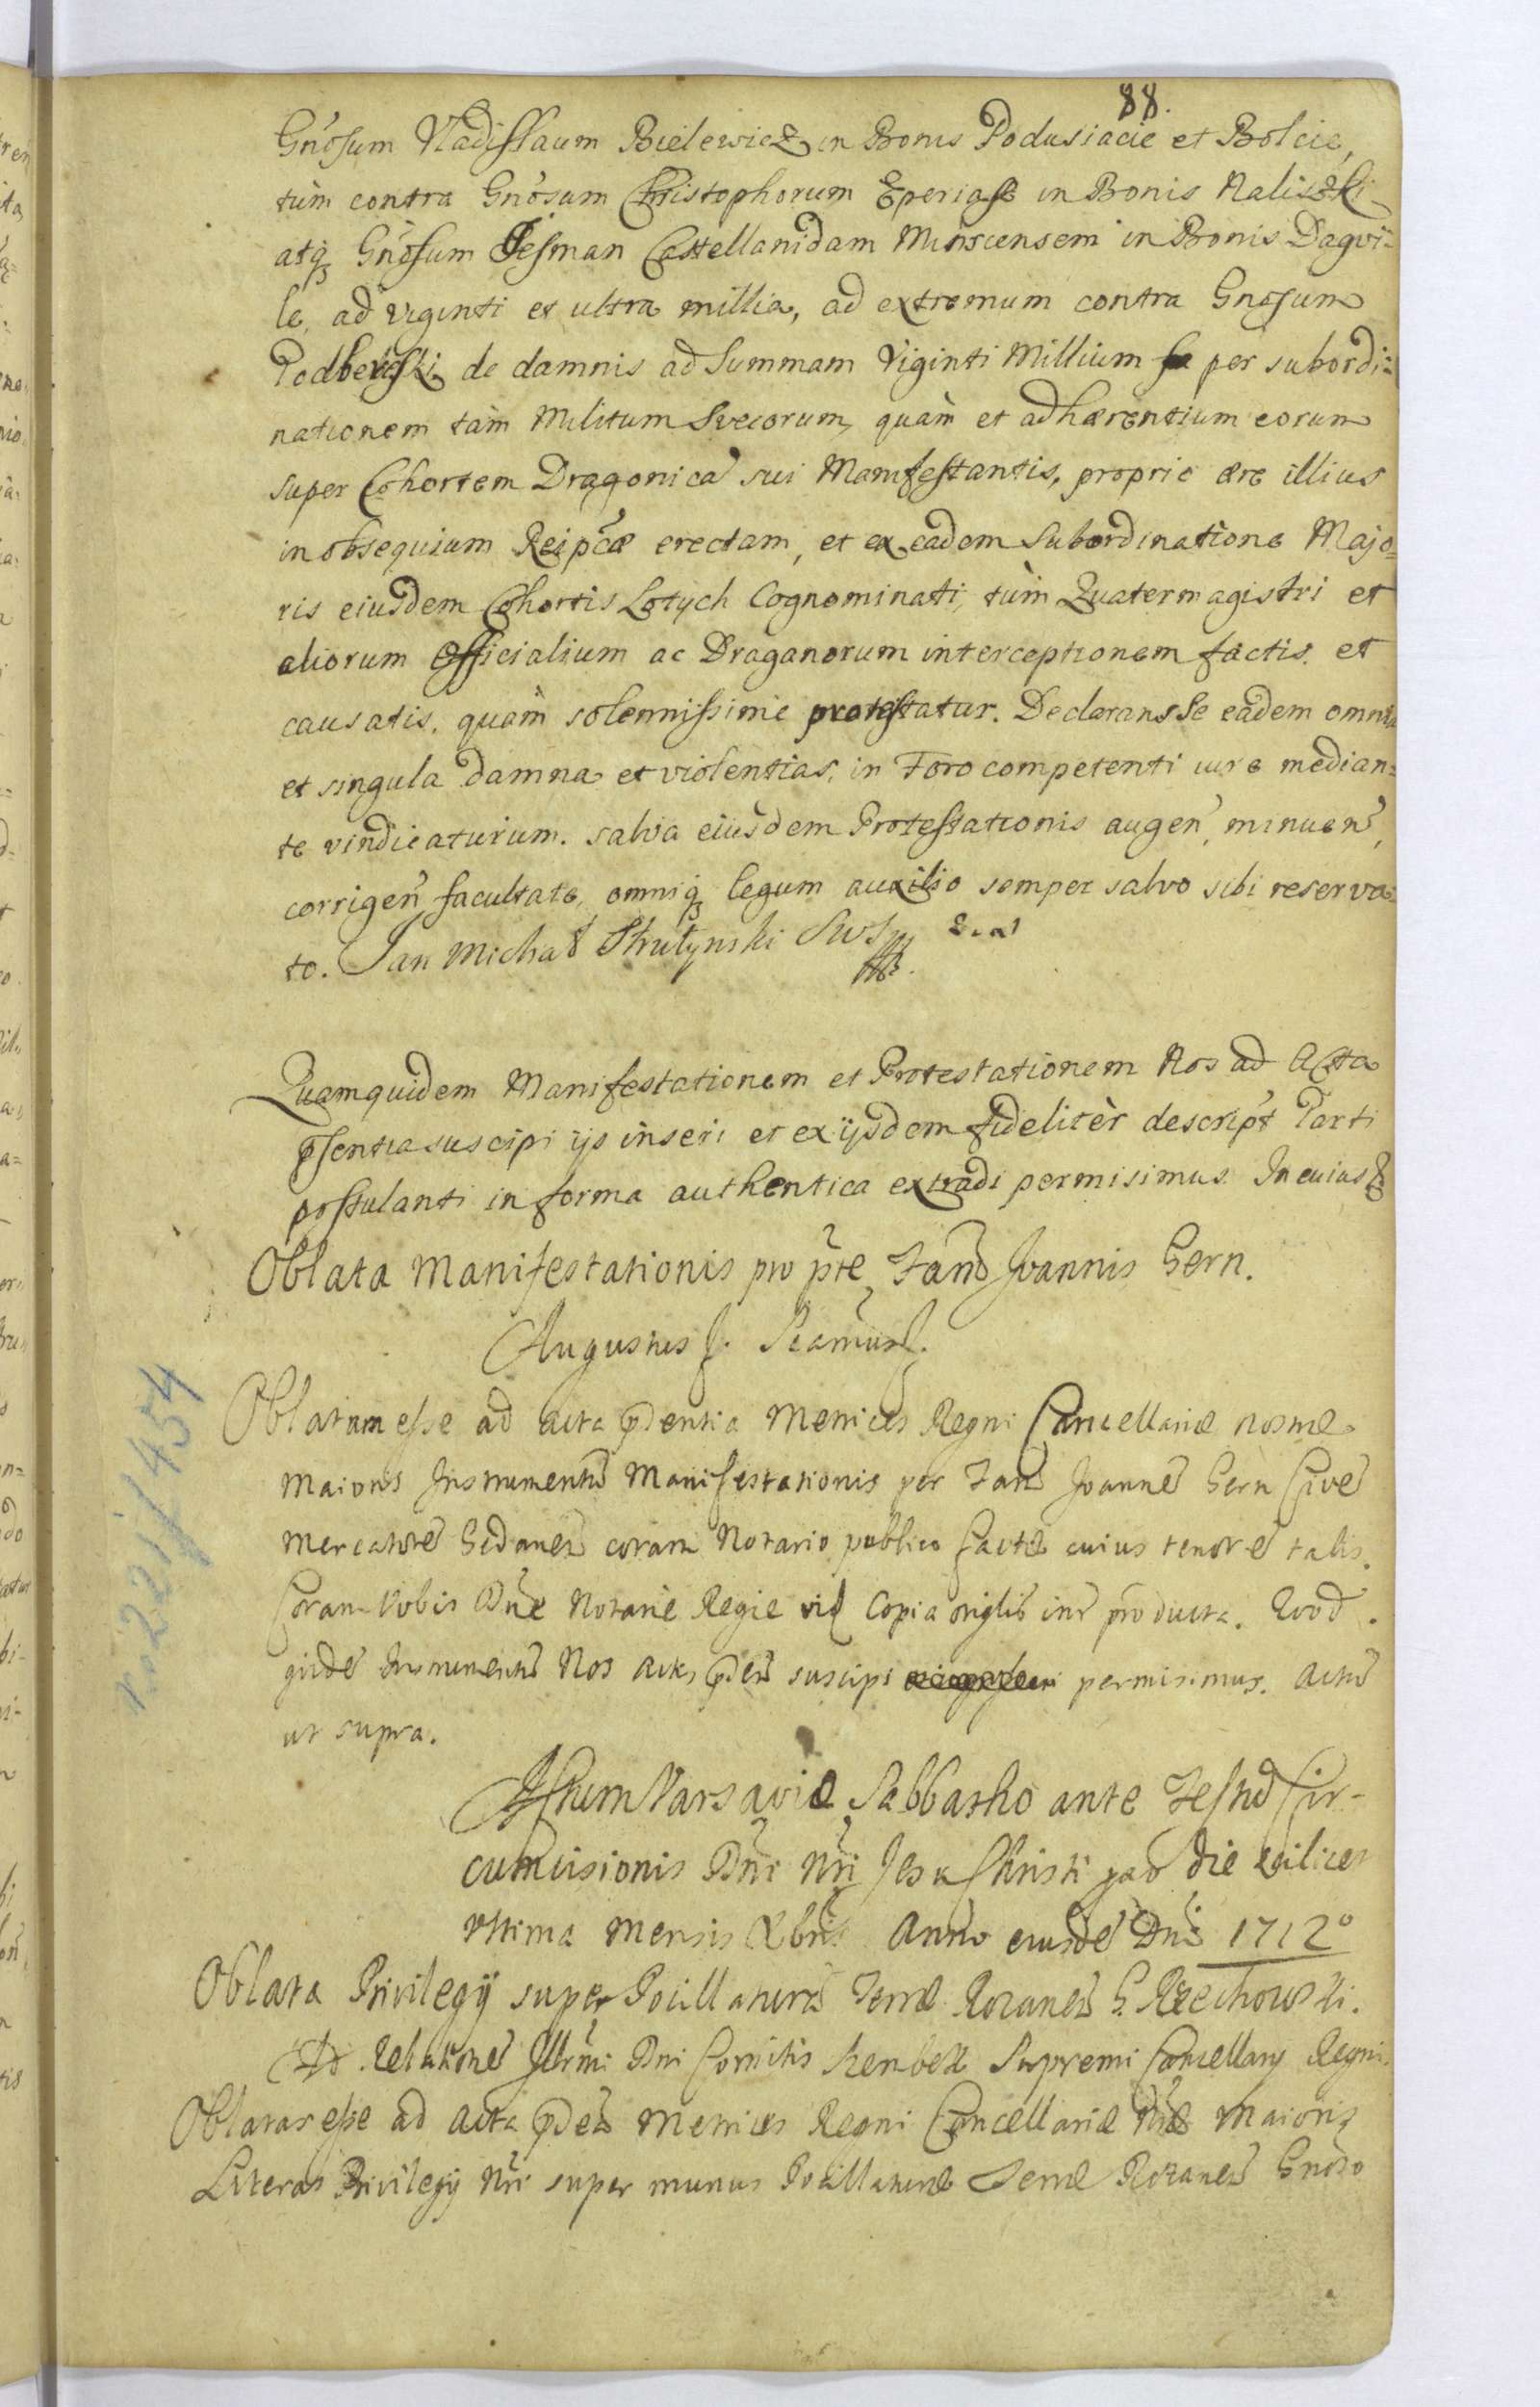 88.
Gnosum Vladislaum Bielewicz in Bonis Podusiacie et Bolcie,
tùm contra Gnosum Christophorum Eperiasz in Bonis Naliszki
atq Gnosum Jesman Castellanidam Minscensem in Bonis Dagvi=
le, ad viginti et ultra millia, ad extremum contra Gnosum
Podbereski de damnis ad Summam Viginti Millium per subordi=
nationem tàm Militum Svecorum, quàm et adhærentium eorum
super Cohortem Dragonica sui Manifestantis, proprio ære illius
in obsequium Reipcæ erectam, et ex eadem Subordinatione Majo=
ris eiusdem Cohortis Lotych Cognominati, tùm Quatermagistri et
aliorum Officialium ac Draganorum interceptionem factis et
causatis, quàm solennissime protestatur. Declarans Se eadem omnia
et singula damna et violentias, in Foro competenti iure median=
te vindicaturum. salva eiusdem Protestationis augen, minuen,
corrigen facultate, omniq legum auxilio semper salvo sibi reserva=
to. Jan Michał Strutynski
Quamquidem Manifestationem et Protestationem Nos ad Acta
pſentia suscipi ijs inseri et ex ijsdem fideliter descript Parti
postulanti in forma authentica extradi permisimus. In cuius
Oblata Manifestationis pro pte Fam Joannis Gern.
Augustus S.
Oblatum esse ad acta pdentia Metrices Regni Cancellariæ nosrræ
Maioris Instrumentu Manifestationis per Fam Joanne Gern Cive
Mercatore Gedanen coram Notario publico facte cuius tenore talis.
Coram Vobis Dne Notarie Regie vid Copia origlis inr producta. Quod
quide Instrumentu Nos Actis pden suscipi permisimus. Actu
ut supra.
Actum Varsaviæ Sabbatho ante Festu Cir-
cumcisionis Dni Nri Jesu Christi die scilicet
ultima Mensis Xbris Anno eiusde Dni 1712°
Oblata Privilegij super Pocillatura Terræ Rozanen G. Rzechowski.
Ad Relatione Illrmi Dni Comitis Szenbek Supremi Cancellary Regni.
Oblatas esse ad Acta pden Metrices Regni Cancellariæ Nræ Maioris
Literas Privilegij Nri super munus Pocillaturæ Terræ Rozanen Gnoso